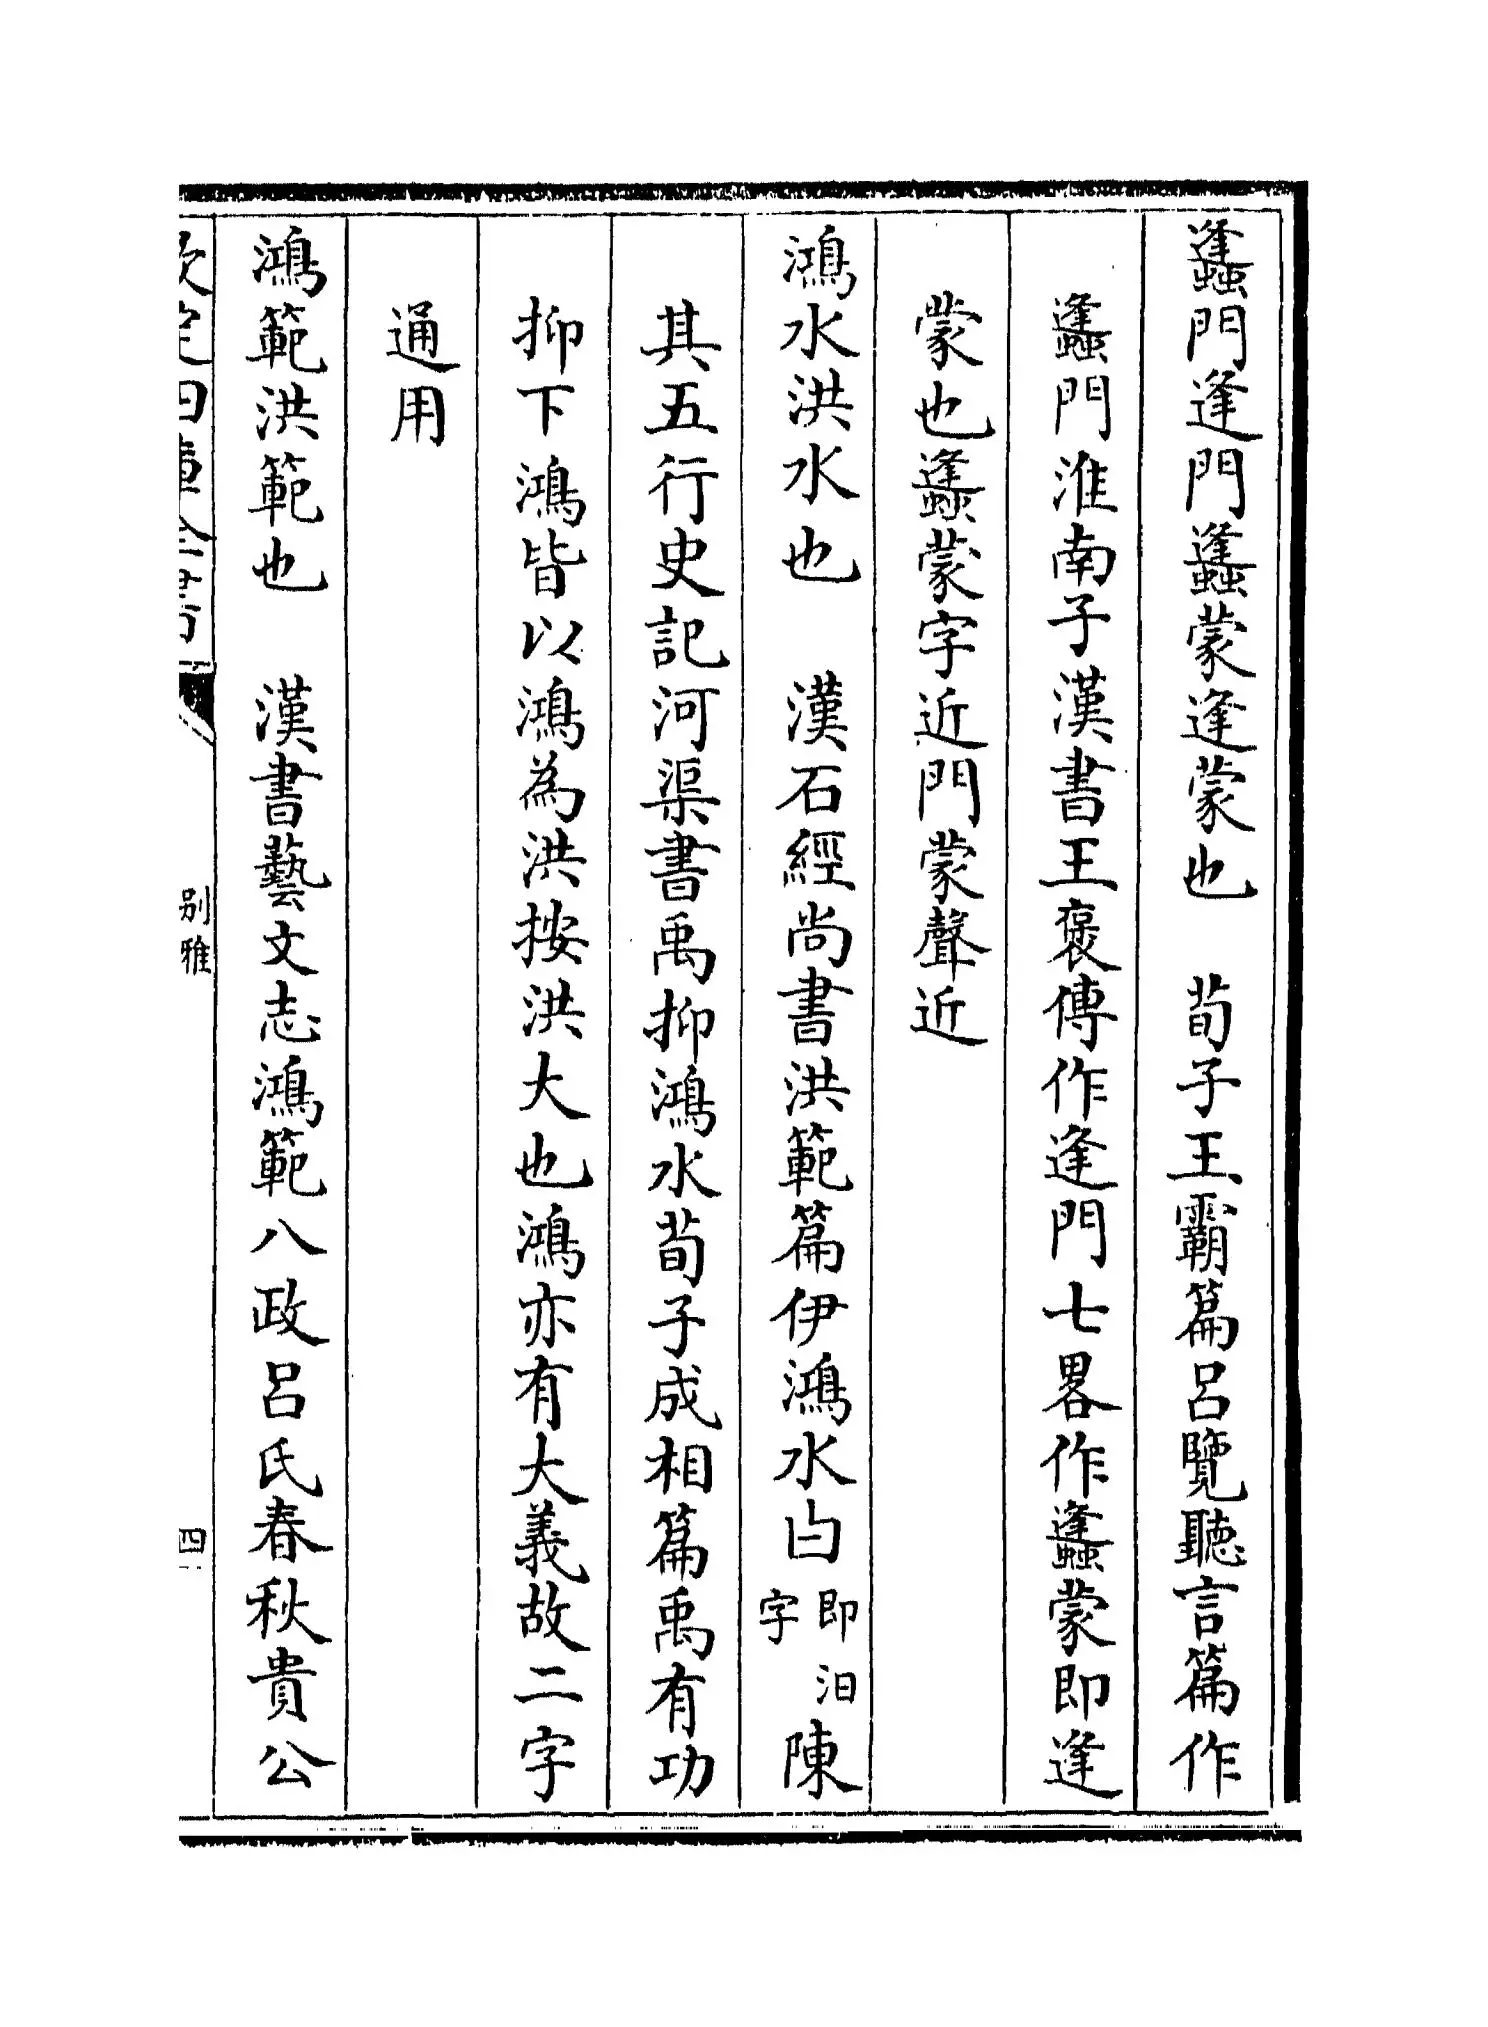 蠭門逢門蠭蒙逢蒙也　荀子王霸篇呂覽聽言篇作
蠭門淮南子漢書王褒傳作逢門七畧作蠭蒙即逢
蒙也蠭蒙字近門蒙聲近
鴻水洪水也　漢石經尚書洪範篇伊鴻水曰即汨字陳
其五行史記河渠書禹抑鴻水荀子成相篇禹有功
抑下鴻皆以鴻為洪按洪大也鴻亦有大義故二字
通用
鴻範洪範也　漢書藝文志鴻範八政呂氏春秋貴公
欽定四庫全書
别雅
四